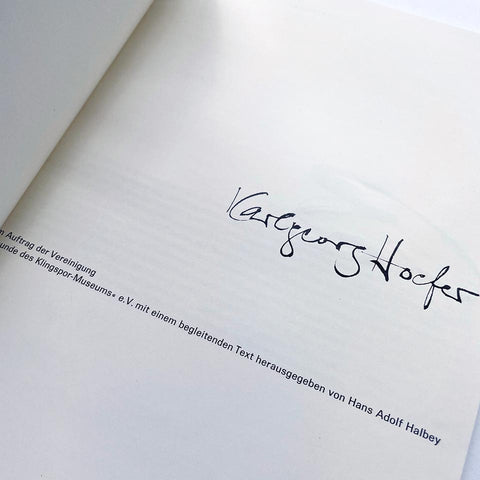 Karlgeorg Hoefer
Auftrag der Vereinigung
des Klingspor-Museums« e.V. mit einem begleitenden Text herausgegeben von Hans Adolf Halbey